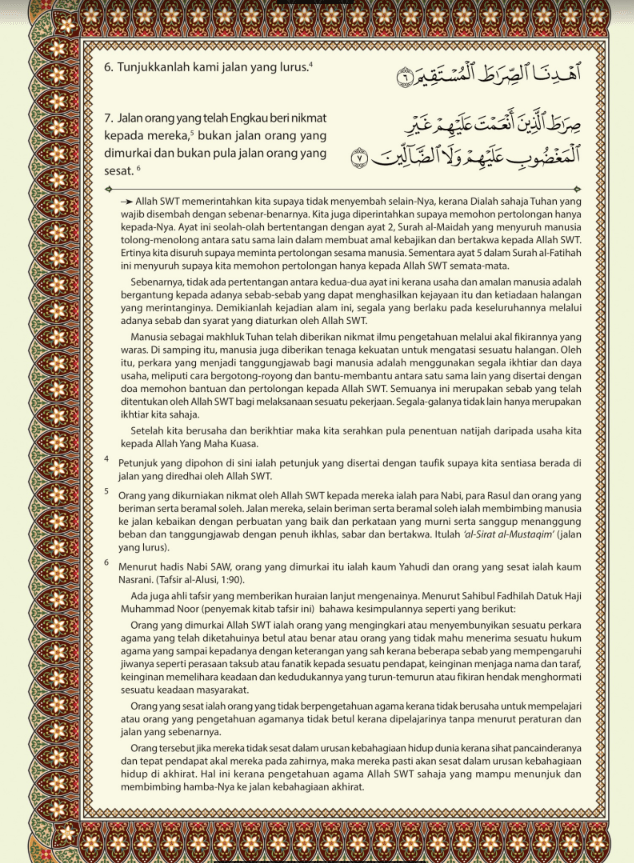 6. Tunjukkanlah kami jalan yang lurus.⁴
ٱهْدِنَا ٱلصِّرَٰطَ ٱلْمُسْتَقِيمَ ٦
7. Jalan orang yang telah Engkau beri nikmat
kepada mereka,⁵ bukan jalan orang yang
dimurkai dan bukan pula jalan orang yang
sesat. ⁶
صِرَٰطَ ٱلَّذِينَ أَنْعَمْتَ عَلَيْهِمْ غَيْرِ
ٱلْمَغْضُوبِ عَلَيْهِمْ وَلَا ٱلضَّآلِّينَ ٧
→ Allah SWT memerintahkan kita supaya tidak menyembah selain-Nya, kerana Dialah sahaja Tuhan yang
wajib disembah dengan sebenar-benarnya. Kita juga diperintahkan supaya memohon pertolongan hanya
kepada-Nya. Ayat ini seolah-olah bertentangan dengan ayat 2, Surah al-Maidah yang menyuruh manusia
tolong-menolong antara satu sama lain dalam membuat amal kebajikan dan bertakwa kepada Allah SWT.
Ertinya kita disuruh supaya meminta pertolongan sesama manusia. Sementara ayat 5 dalam Surah al-Fatihah
ini menyuruh supaya kita memohon pertolongan hanya kepada Allah SWT semata-mata.
Sebenarnya, tidak ada pertentangan antara kedua-dua ayat ini kerana usaha dan amalan manusia adalah
bergantung kepada adanya sebab-sebab yang dapat menghasilkan kejayaan itu dan ketiadaan halangan
yang merintanginya. Demikianlah kejadian alam ini, segala yang berlaku pada keseluruhannya melalui
adanya sebab dan syarat yang diaturkan oleh Allah SWT.
Manusia sebagai makhluk Tuhan telah diberikan nikmat ilmu pengetahuan melalui akal fikirannya yang
waras. Di samping itu, manusia juga diberikan tenaga kekuatan untuk mengatasi sesuatu halangan. Oleh
itu, perkara yang menjadi tanggungjawab bagi manusia adalah menggunakan segala ikhtiar dan daya
usaha, meliputi cara bergotong-royong dan bantu-membantu antara satu sama lain yang disertai dengan
doa memohon bantuan dan pertolongan kepada Allah SWT. Semuanya ini merupakan sebab yang telah
ditentukan oleh Allah SWT bagi melaksanaan sesuatu pekerjaan. Segala-galanya tidak lain hanya merupakan
ikhtiar kita sahaja.
Setelah kita berusaha dan berikhtiar maka kita serahkan pula penentuan natijah daripada usaha kita
kepada Allah Yang Maha Kuasa.
⁴ Petunjuk yang dipohon di sini ialah petunjuk yang disertai dengan taufik supaya kita sentiasa berada di
jalan yang diredhai oleh Allah SWT.
⁵ Orang yang dikurniakan nikmat oleh Allah SWT kepada mereka ialah para Nabi, para Rasul dan orang yang
beriman serta beramal soleh. Jalan mereka, selain beriman serta beramal soleh ialah membimbing manusia
ke jalan kebaikan dengan perbuatan yang baik dan perkataan yang murni serta sanggup menanggung
beban dan tanggungjawab dengan penuh ikhlas, sabar dan bertakwa. Itulah 'al-Sirat al-Mustaqim' (jalan
yang lurus).
⁶ Menurut hadis Nabi SAW, orang yang dimurkai itu ialah kaum Yahudi dan orang yang sesat ialah kaum
Nasrani. (Tafsir al-Alusi, 1:90).
Ada juga ahli tafsir yang memberikan huraian lanjut mengenainya. Menurut Sahibul Fadhilah Datuk Haji
Muhammad Noor (penyemak kitab tafsir ini) bahawa kesimpulannya seperti yang berikut:
Orang yang dimurkai Allah SWT ialah orang yang mengingkari atau menyembunyikan sesuatu perkara
agama yang telah diketahuinya betul atau benar atau orang yang tidak mahu menerima sesuatu hukum
agama yang sampai kepadanya dengan keterangan yang sah kerana beberapa sebab yang mempengaruhi
jiwanya seperti perasaan taksub atau fanatik kepada sesuatu pendapat, keinginan menjaga nama dan taraf,
keinginan memelihara keadaan dan kedudukannya yang turun-temurun atau fikiran hendak menghormati
sesuatu keadaan masyarakat.
Orang yang sesat ialah orang yang tidak berpengetahuan agama kerana tidak berusaha untuk mempelajari
atau orang yang pengetahuan agamanya tidak betul kerana dipelajarinya tanpa menurut peraturan dan
jalan yang sebenarnya.
Orang tersebut jika mereka tidak sesat dalam urusan kebahagiaan hidup dunia kerana sihat pancainderanya
dan tepat pendapat akal mereka pada zahirnya, maka mereka pasti akan sesat dalam urusan kebahagiaan
hidup di akhirat. Hal ini kerana pengetahuan agama Allah SWT sahaja yang mampu menunjuk dan
membimbing hamba-Nya ke jalan kebahagiaan akhirat.